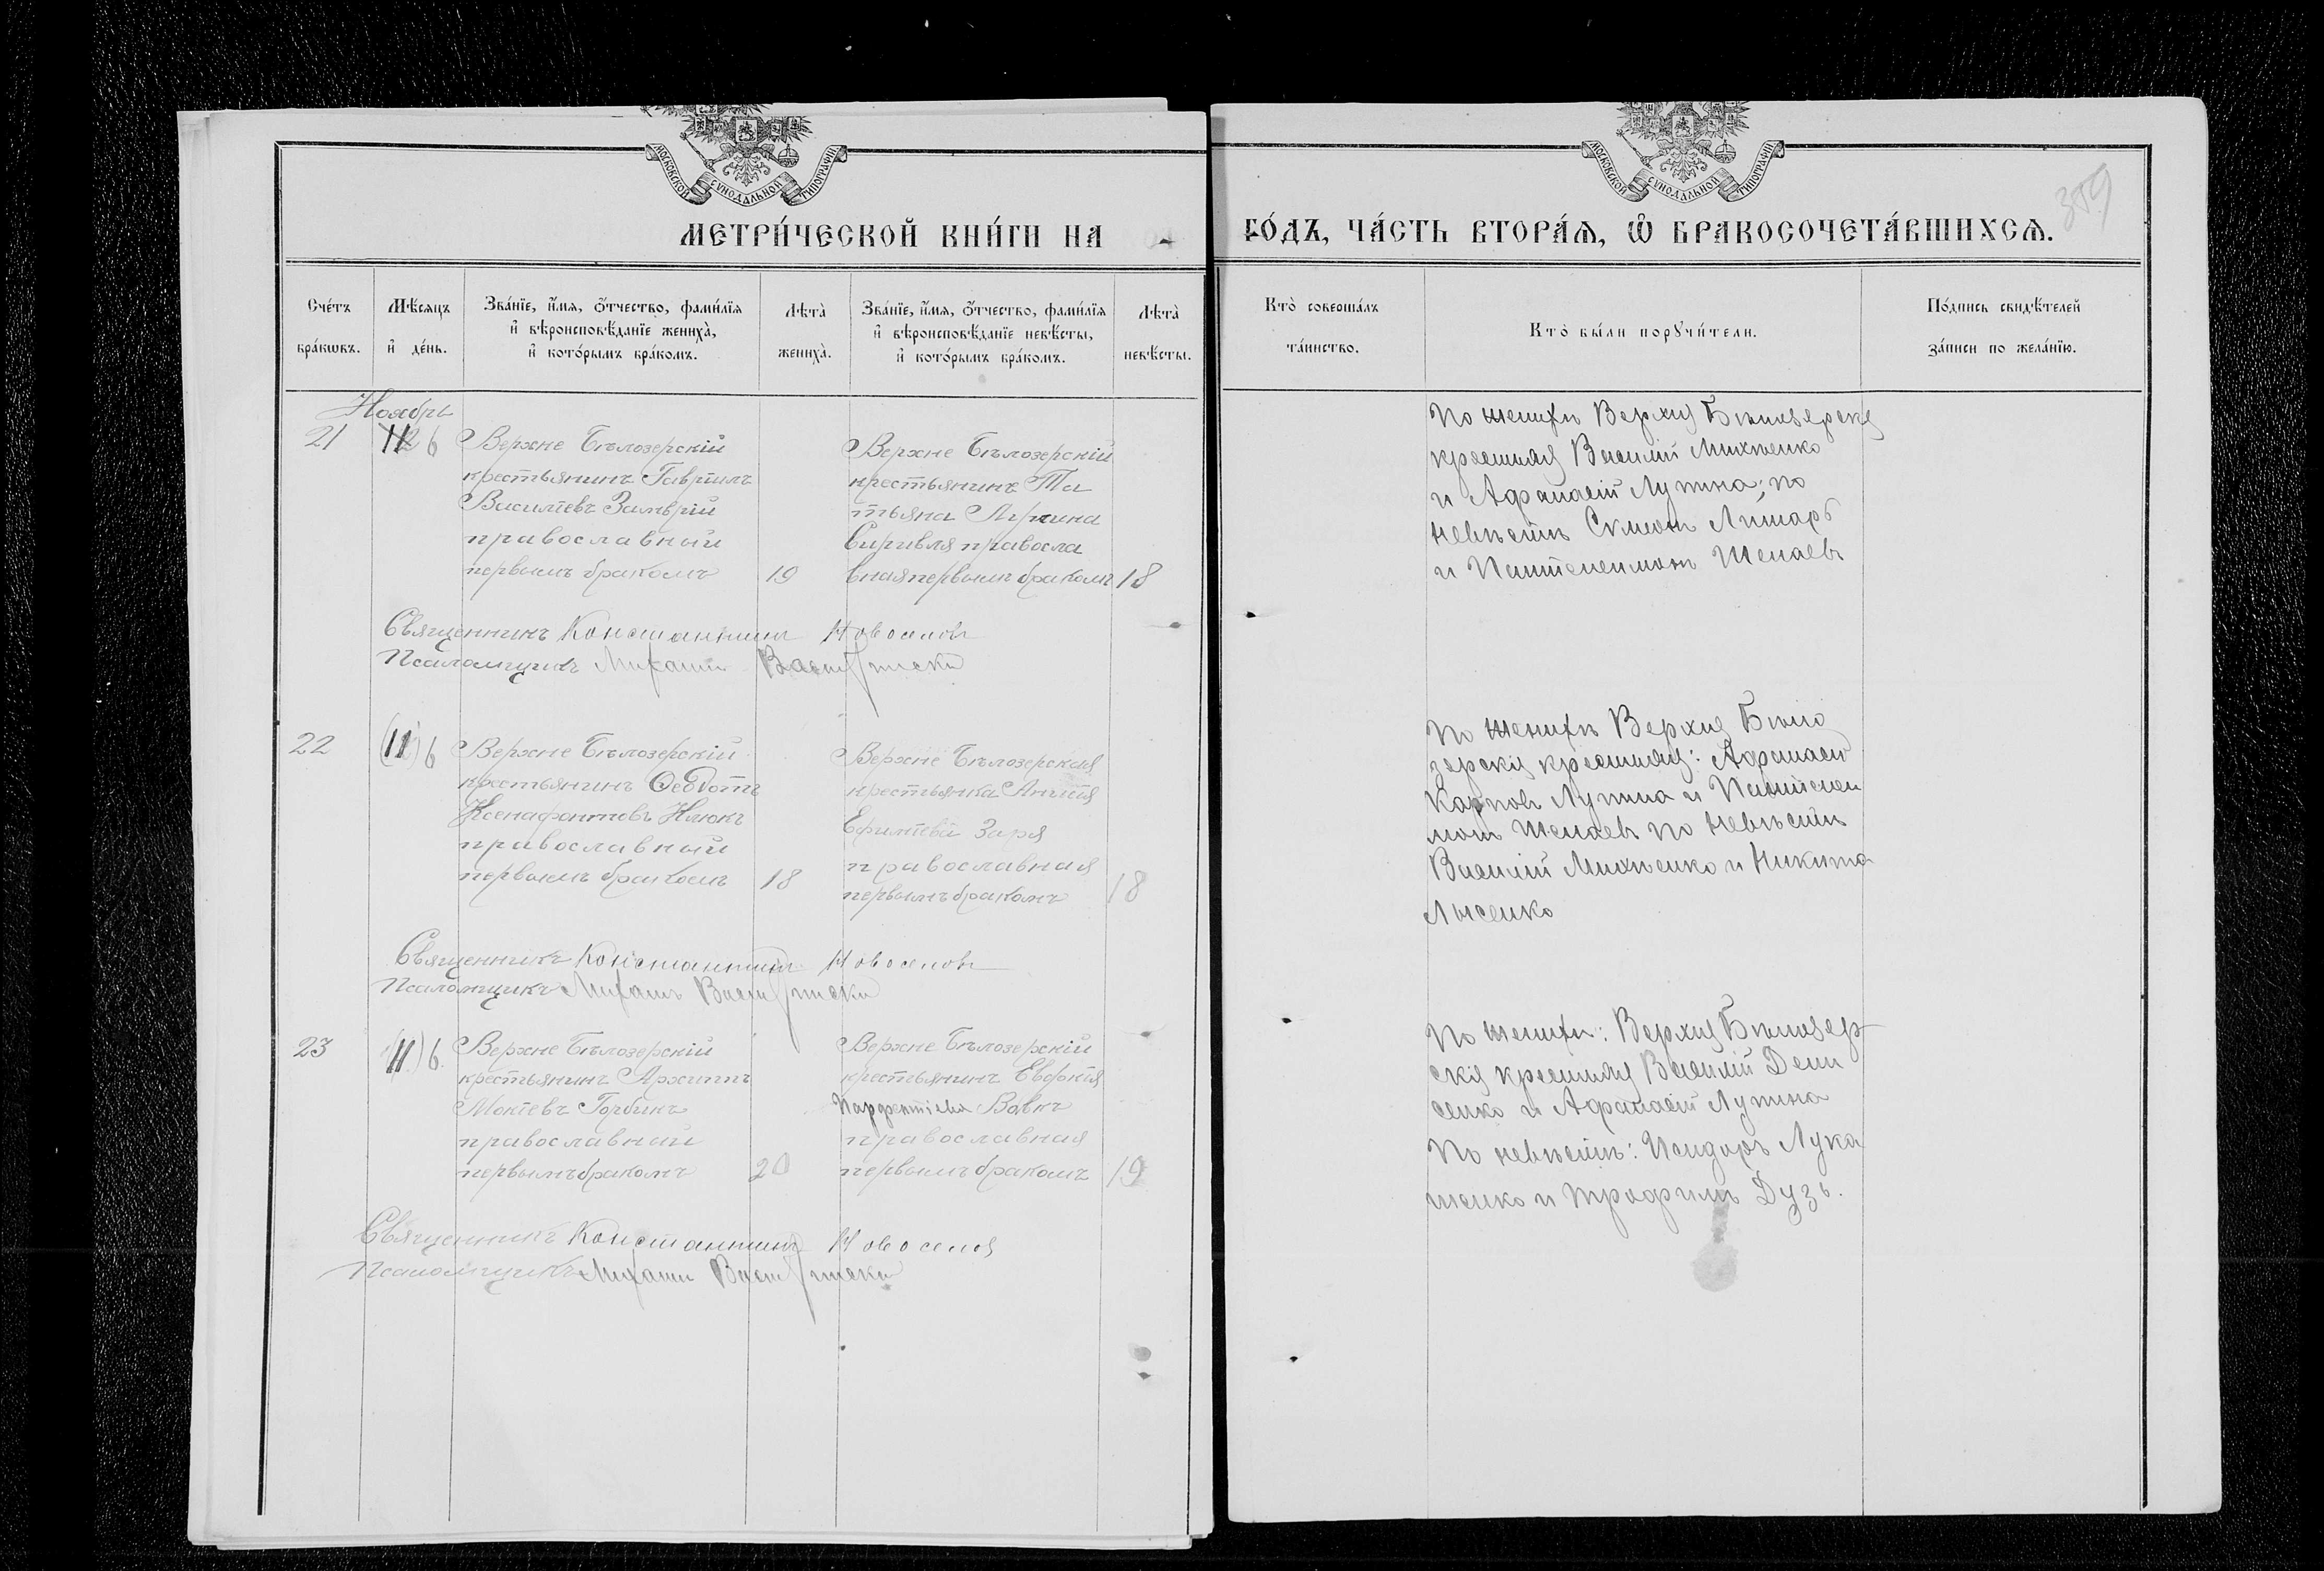 МОСКОВСКОЙ СѴНОДАЛЬНОЙ ТИПОГРАФІИ
МЕТРИ́ЧЕСКОЙ КНИ́ГИ НА
Сче́тъ бра́кωвъ.
Мѣ́сяцъ и҆ де́нь.
Зва́нїе, и҆́мѧ, ѻ҆́тчество, фами́лїѧ
и҆ вѣроисповѣ́данїе жениха̀,
и҆ кото́рымъ бра́комъ.
Лѣта̀ жениха̀.
Зва́нїе, и҆́мѧ, ѻ҆́тчество, фами́лїѧ
и҆ вѣроисповѣ́данїе невѣ́сты,
и҆ кото́рымъ бра́комъ.
Лѣта̀ невѣ́сты.
Ноябрь
21
6
Верхне Бѣлозерскій
крестьянинъ Гавріилъ
Василіевъ
православный
первымъ бракомъ
19
Верхне Бѣлозерскій
крестьянинъ Та
тьяна
правосла
вная первымъ бракомъ
18
Священникъ Константинъ Новоселовъ
Псаломщикъ Михаилъ
22
(11) 6
Верхне Бѣлозерскій
крестьянинъ Ѳедотъ
Ксенафонтовъ
православный
первымъ бракомъ
18
Верхне Бѣлозерская
крестьянка
Заря
православная
первымъ бракомъ
18
Священникъ Константинъ Новоселовъ
Псаломщикъ Михаилъ
23
(11) 6
Верхне Бѣлозерскій
крестьянинъ Архиппъ
Мокіевъ Горбикъ
православный
первымъ бракомъ
20
Верхне Бѣлозерскій
крестьянинъ
Парфентіева Вовкъ
православная
первымъ бракомъ
19
Священникъ Константинъ Новоселов
Псаломщикъ Михаилъ
МОСКОВСКОЙ СѴНОДАЛЬНОЙ ТИПОГРАФІИ
359
ГО́ДЪ, ЧА́СТЬ ВТОРА́Ѧ, Ѽ БРАКОСОЧЕТА́ВШИХСѦ.
Кто̀ соверша́лъ
та́инство.
Кто̀ бы́ли порꙋчи́тели.
По́дпись свидѣ́телей
за́писи по жела́нїю.
По женихѣ Верхне Бѣлозерскіе
крестьяне Василій Михненко
и Афанасій Лупина; по
невѣстѣ Симеонъ
и Пантелеимонъ
По женихѣ Верхне Бѣло
зерскіе крестьяне: Афанасій
Карповъ Лупина и Пантелеи
монъ по невѣстѣ
Василій Михненко и Никита
Лысенко
По женихѣ: Верхне Бѣлозер
скіе крестьяне Василій Дени
сенко и Афанасій Лупина
По невѣстѣ: Исидоръ Лука
шенко и Трофимъ Дузь.